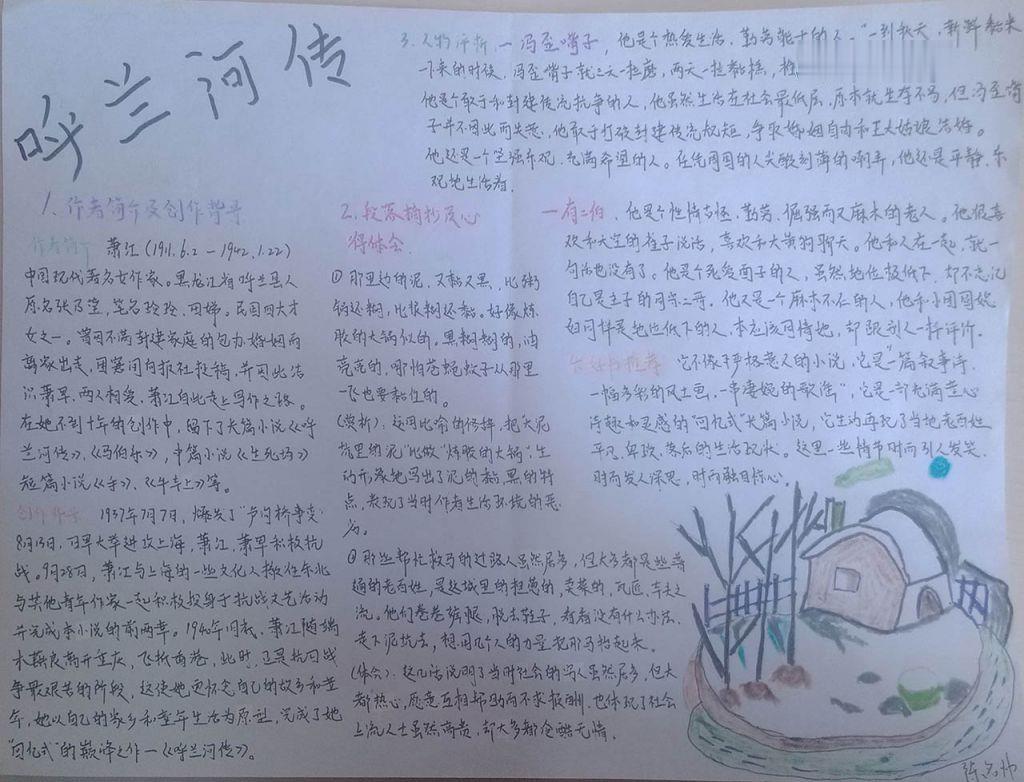 呼兰河传
3. 人物评析 — 冯歪嘴子, 他是个热爱生活、勤劳能干的人。"一到秋天, 新鲜粘米
一下来的时候, 冯歪嘴子就三天一拉磨, 两天一拉粘糕,
他是个敢于和封建传统抗争的人, 他虽然生活在社会最低层, 原本就生存不易, 但冯歪嘴
子并不因此而失志, 他敢于打破封建传统观念, 争取婚姻自由和王大姑娘结婚。
他还是一个坚强乐观、充满希望的人。在任周围的人尖酸刻薄的嘲弄, 他还是平静、乐
观地生活着.
1. 作者简介及创作背景
作者简介 萧红 (1911.6.2—1942.1.22)
中国现代著名女作家。黑龙江省呼兰县人
原名张乃莹, 笔名玲玲、田娣。民国四大才
女之一。曾因不满封建家庭的包办婚姻而
离家出走, 困窘间向报社投稿, 并因此结
识萧军, 两人相爱, 萧红自此走上写作之路。
在她不到十年的创作中, 留下了长篇小说《呼
兰河传》、《马伯乐》, 中篇小说《生死场》
短篇小说《手》、《牛车上》等。
创作背景 1937年7月7日, 爆发了"卢沟桥事变"
8月13日, 日军大举进攻上海, 萧红、萧军积极抗
战。9月28日, 萧红与上海的一些文化人撤往东北
与其他青年作家一起积极投身于抗战文艺活动
并完成本小说的前两章。1940年1月, 萧红随端
木蕻良离开重庆, 飞抵香港, 此时, 正是抗日战
争最艰苦的阶段, 这使她更怀念自己的故乡和童
年, 她以自己的家乡和童年生活为原型, 完成了她
"回忆式"的巅峰之作—《呼兰河传》。
2. 段落摘抄及心
得体会.
① 那里边的泥, 又黏又黑, 比粥
锅还糊, 比浆糊还黏。好像炼
胶的大锅似的, 黑糊糊的, 油
亮亮的, 哪怕苍蝇蚊子从那里
一飞也要黏住的。
(赏析): 运用比喻的修辞, 把大泥
坑里的泥"比做"炼胶的大锅", 生
动形象地写出了泥的黏、黑的特
点, 表现了当时作者生活环境的恶
劣。
② 那些帮忙救马的过路人虽然居多, 但大多都是些普
通的老百姓, 是这城里的担葱的, 卖菜的, 瓦匠, 车夫之
流。他们卷卷裤腿, 脱去鞋子, 看看没有什么办法,
走下泥坑去, 想用几个人的力量把那马抬起来。
(体会): 这几话说明了当时社会的穷人虽然居多, 但大
都热心, 愿意互相帮助而不求报酬, 也体现了社会
上流人士虽然高贵, 却大多都冷酷无情.
— 有二伯, 他是个性情古怪、勤劳、倔强而又麻木的老人。他很喜
欢和天空的雀子说话, 喜欢和大黄狗聊天。他和人在一起, 就一
句话也没有了。他是个死爱面子的人, 虽然地位极低下, 却不忘记
自己是主子的同宗二哥。他又是一个麻木不仁的人, 他和小团圆媳
妇同样是地位低下的人, 本应该同情她, 却跟别人一样评价。
它不像严格意义的小说, 它是"一篇叙事诗,
一幅多彩的风土画, 一串凄婉的歌谣", 它是一部充满童心
诗趣和灵感的"回忆式"长篇小说, 它生动再现了当地老百姓
平凡、卑琐、落后的生活现状。这里一些情节时而引人发笑,
时而发人深思, 时而触目惊心.